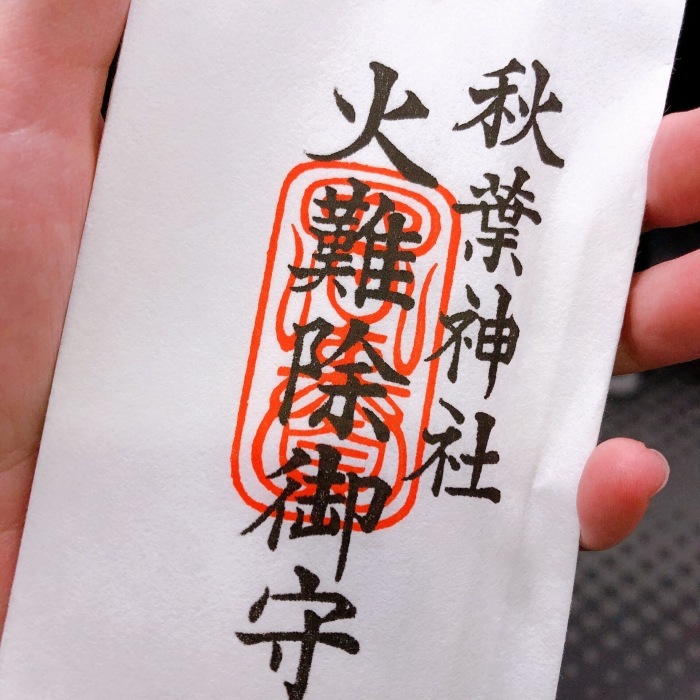 秋葉神社
火難除御守